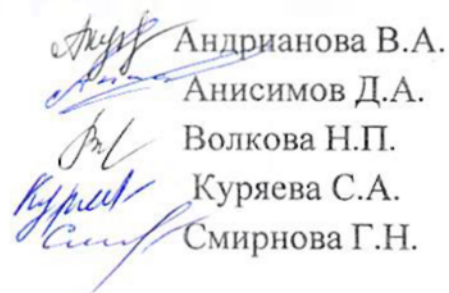 Андрианова В.А.
Анисимов Д.А.
Волкова Н.П.
Куряева С.А.
Смирнова Г.Н.